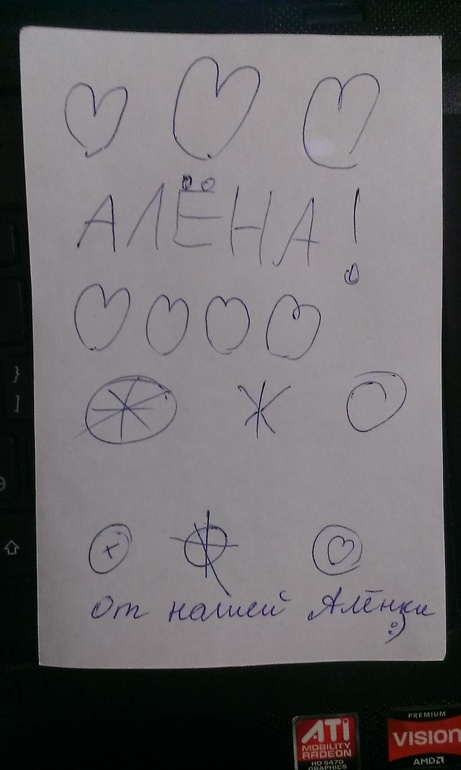 АЛЁНА!
}
]
От нашей Алёнки
:)
ATI
MOBILITY
RADEON
HD 5470
GRAPHICS
PREMIUM
VISION
AMD